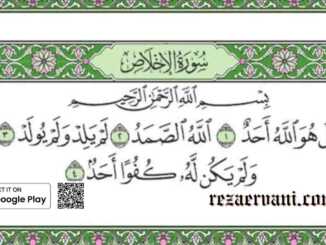 سُورَةُ الْإِخْلَاصِ
بِسْمِ اللَّهِ الرَّحْمَٰنِ الرَّحِيمِ
هُوَ اللَّهُ أَحَدٌ ١ اللَّهُ الصَّمَدُ ٢ لَمْ يَلِدْ وَلَمْ يُولَدْ ٣
وَلَمْ يَكُن لَّهُ كُفُوًا أَحَدٌ ٤
ET IT ON
oogle Play
rezaervani.com